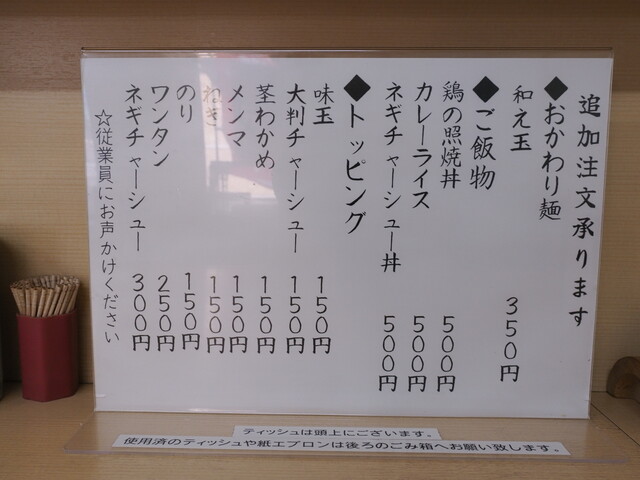 追加注文承ります
◆おかわり麺
和え玉 350円
◆ご飯物
鶏の照焼丼 500円
カレーライス 500円
ネギチャーシュー丼 500円
◆トッピング
味玉 150円
大判チャーシュー 150円
茎わかめ 150円
メンマ 150円
ねぎ 150円
のり 150円
ワンタン 250円
ネギチャーシュー 300円
☆従業員にお声かけください
ティッシュは頭上にございます。
使用済のティッシュや紙エプロンは後ろのごみ箱へお願い致します。